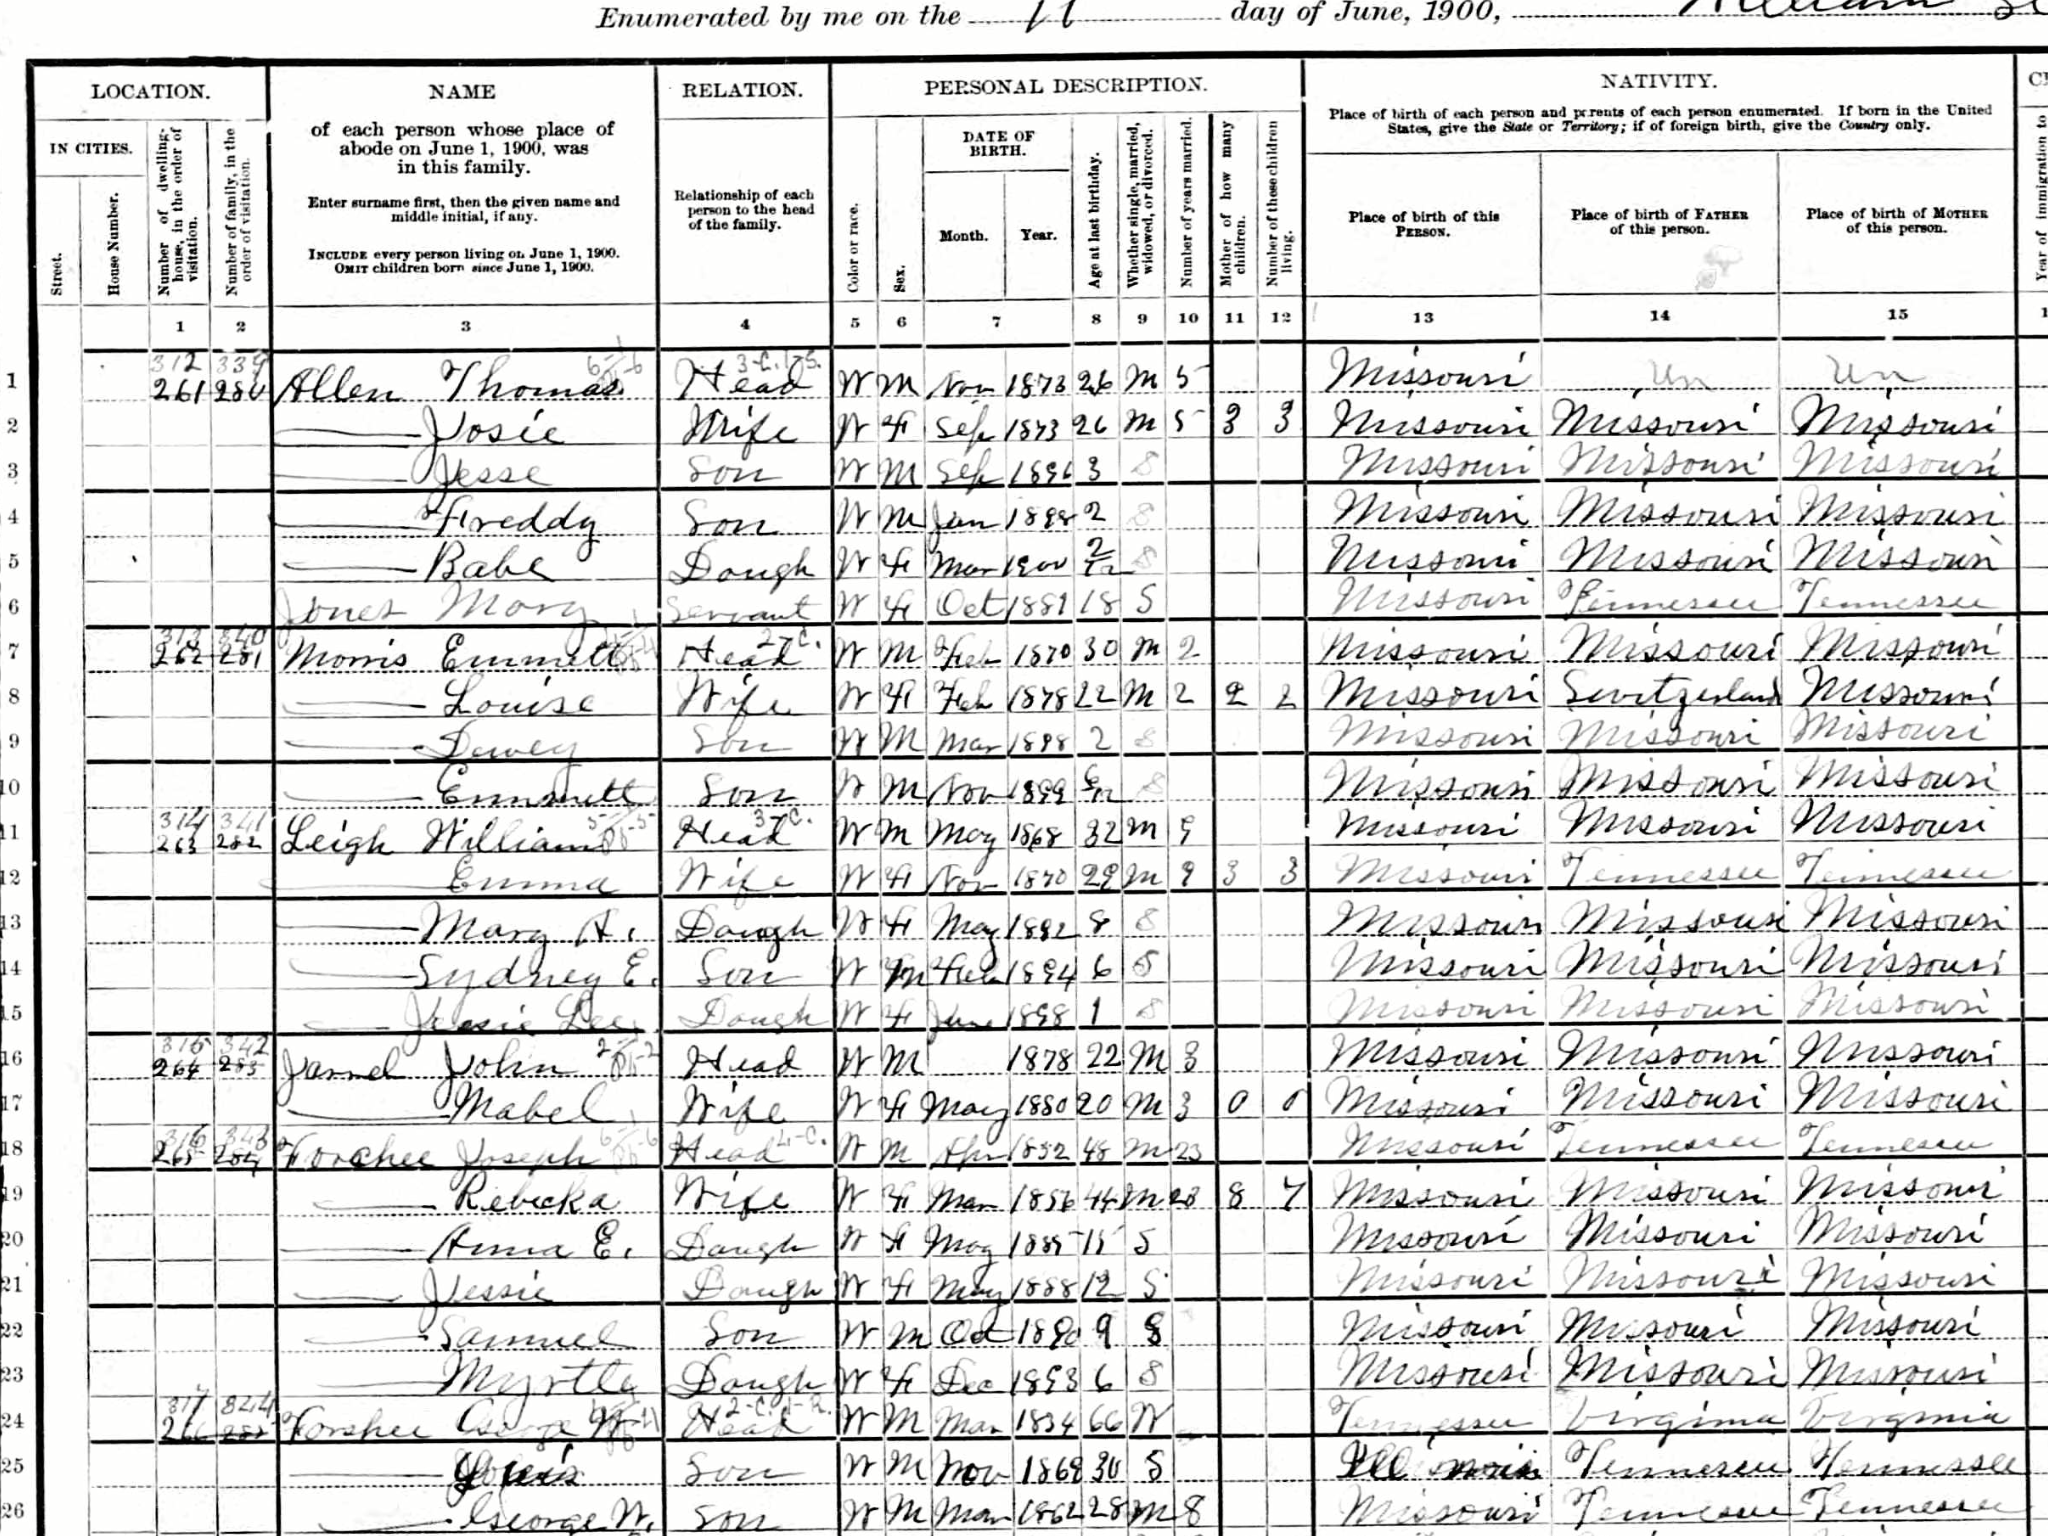 Enumerated by me on the 11 day of June, 1900, William
LOCATION. NAME RELATION. PERSONAL DESCRIPTION. NATIVITY.
IN CITIES.
Street.
House Number.
Number of dwelling-house, in the order of visitation.
Number of family, in the order of visitation.
of each person whose place of
abode on June 1, 1900, was
in this family.
Enter surname first, then the given name and
middle initial, if any.
INCLUDE every person living on June 1, 1900.
OMIT children born since June 1, 1900.
Relationship of each
person to the head
of the family.
Color or race.
Sex.
DATE OF
BIRTH.
Month. Year.
Age at last birthday.
Whether single, married, widowed, or divorced.
Number of years married.
Mother of how many children.
Number of those children living.
Place of birth of each person and parents of each person enumerated. If born in the United
States, give the State or Territory; if of foreign birth, give the Country only.
Place of birth of this
PERSON.
Place of birth of FATHER
of this person.
Place of birth of MOTHER
of this person.
Year of immigration to
1 2 3 4 5 6 7 8 9 10 11 12 13 14 15
312 339
1 261 280 Allen Thomas Head W M Nov 1873 26 M 5 Missouri Un Un
2 Josie Wife W F Sep 1873 26 M 5 3 3 Missouri Missouri Missouri
3 Jesse Son W M Sep 1896 3 S Missouri Missouri Missouri
4 Freddy Son W M Jan 1898 2 S Missouri Missouri Missouri
5 Babe Daugh W F Mar 1900 2/12 S Missouri Missouri Missouri
6 Jones Mary Servant W F Oct 1881 18 S Missouri Tennessee Tennessee
313 340
7 262 281 Morris Emmett Head W M Feb 1870 30 M 2 Missouri Missouri Missouri
8 Louise Wife W F Feb 1878 22 M 2 2 2 Missouri Switzerland Missouri
9 Dewey Son W M Mar 1898 2 S Missouri Missouri Missouri
10 Emmett Son W M Nov 1899 6/12 S Missouri Missouri Missouri
314 341
11 263 282 Leigh William Head W M May 1868 32 M 9 Missouri Missouri Missouri
12 Emma Wife W F Nov 1870 29 M 9 3 3 Missouri Tennessee Tennessee
13 Mary A. Daugh W F May 1892 8 S Missouri Missouri Missouri
14 Sydney E. Son W M Feb 1894 6 S Missouri Missouri Missouri
15 Jessie Lee Daugh W F June 1898 1 S Missouri Missouri Missouri
315 342
16 264 283 John Head W M 1878 22 M 3 Missouri Missouri Missouri
17 Mabel Wife W F May 1880 20 M 3 0 0 Missouri Missouri Missouri
316 343
18 265 284 Forshee Joseph Head W M Apr 1852 48 M 23 Missouri Tennessee Tennessee
19 Rebicka Wife W F Mar 1856 44 M 23 8 7 Missouri Missouri Missouri
20 Anna E. Daugh W F May 1885 15 S Missouri Missouri Missouri
21 Jessie Daugh W F May 1888 12 S Missouri Missouri Missouri
22 Samuel Son W M Oct 1890 9 S Missouri Missouri Missouri
23 Myrtle Daugh W F Dec 1893 6 S Missouri Missouri Missouri
317 344
24 266 285 Forshee George W Head W M Mar 1834 66 W Tennessee Virginia Virginia
25 Son W M Nov 1869 30 S Illinois Tennessee Tennessee
26 George W. Son W M Mar 28 M 8 Missouri Tennessee Tennessee